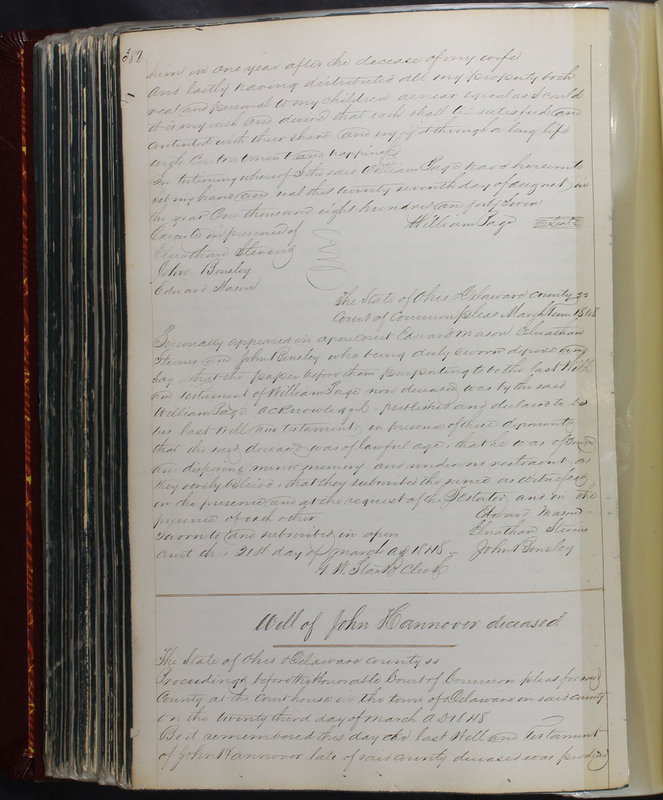 387
him in one year after the decease of my wife
And lastly having distributed all my property both
real and personal to my children as near equal as I could
it is my wish and desire that each shall be satisfied and
contented with their share and enjoy it through a long life
with Contentment and happiness
In testimony whereof I the said William Page have hereunto
set my hand and seal this twenty seventh day of August in
the year One thousand eight hundred and forty seven
Executed in presence of William Page Seal
Elnathan Stevens
John Bensley
Edward Mason
The State of Ohio Delaware County ss
Court of Common pleas March Term 1848
Personally appeared in open court Edward Mason Elnathan
Stevens and John Bensley who being duly sworn depose and
Say that the paper before them purporting to be the last Will
and testament of William Page now deceased was by the said
William Page acknowledged, published and declared to be
his last Will and testament in presence of these deponents
that the said deceased was of lawful age, that he was of sound
and disposing mind memory and under no restraint, as
they verily believe, that they subscribed the same as witnesses
in the presence and at the request of the Testator, and in the
presence of each other
Edward Mason
Sworn to and subscribed in open Elnathan Stevens
Court this 21st day of March AD 1848 John Bensley
Clerk
Will of John Hannover deceased
The State of Ohio Delaware County ss
Proceedings before the Honorable Court of Common pleas for said
County at the Court house in the town of Delaware in said County
on the twenty third day of March AD 1848
Be it remembered this day the last Will and testament
of John Hannover late of said County deceased was produced